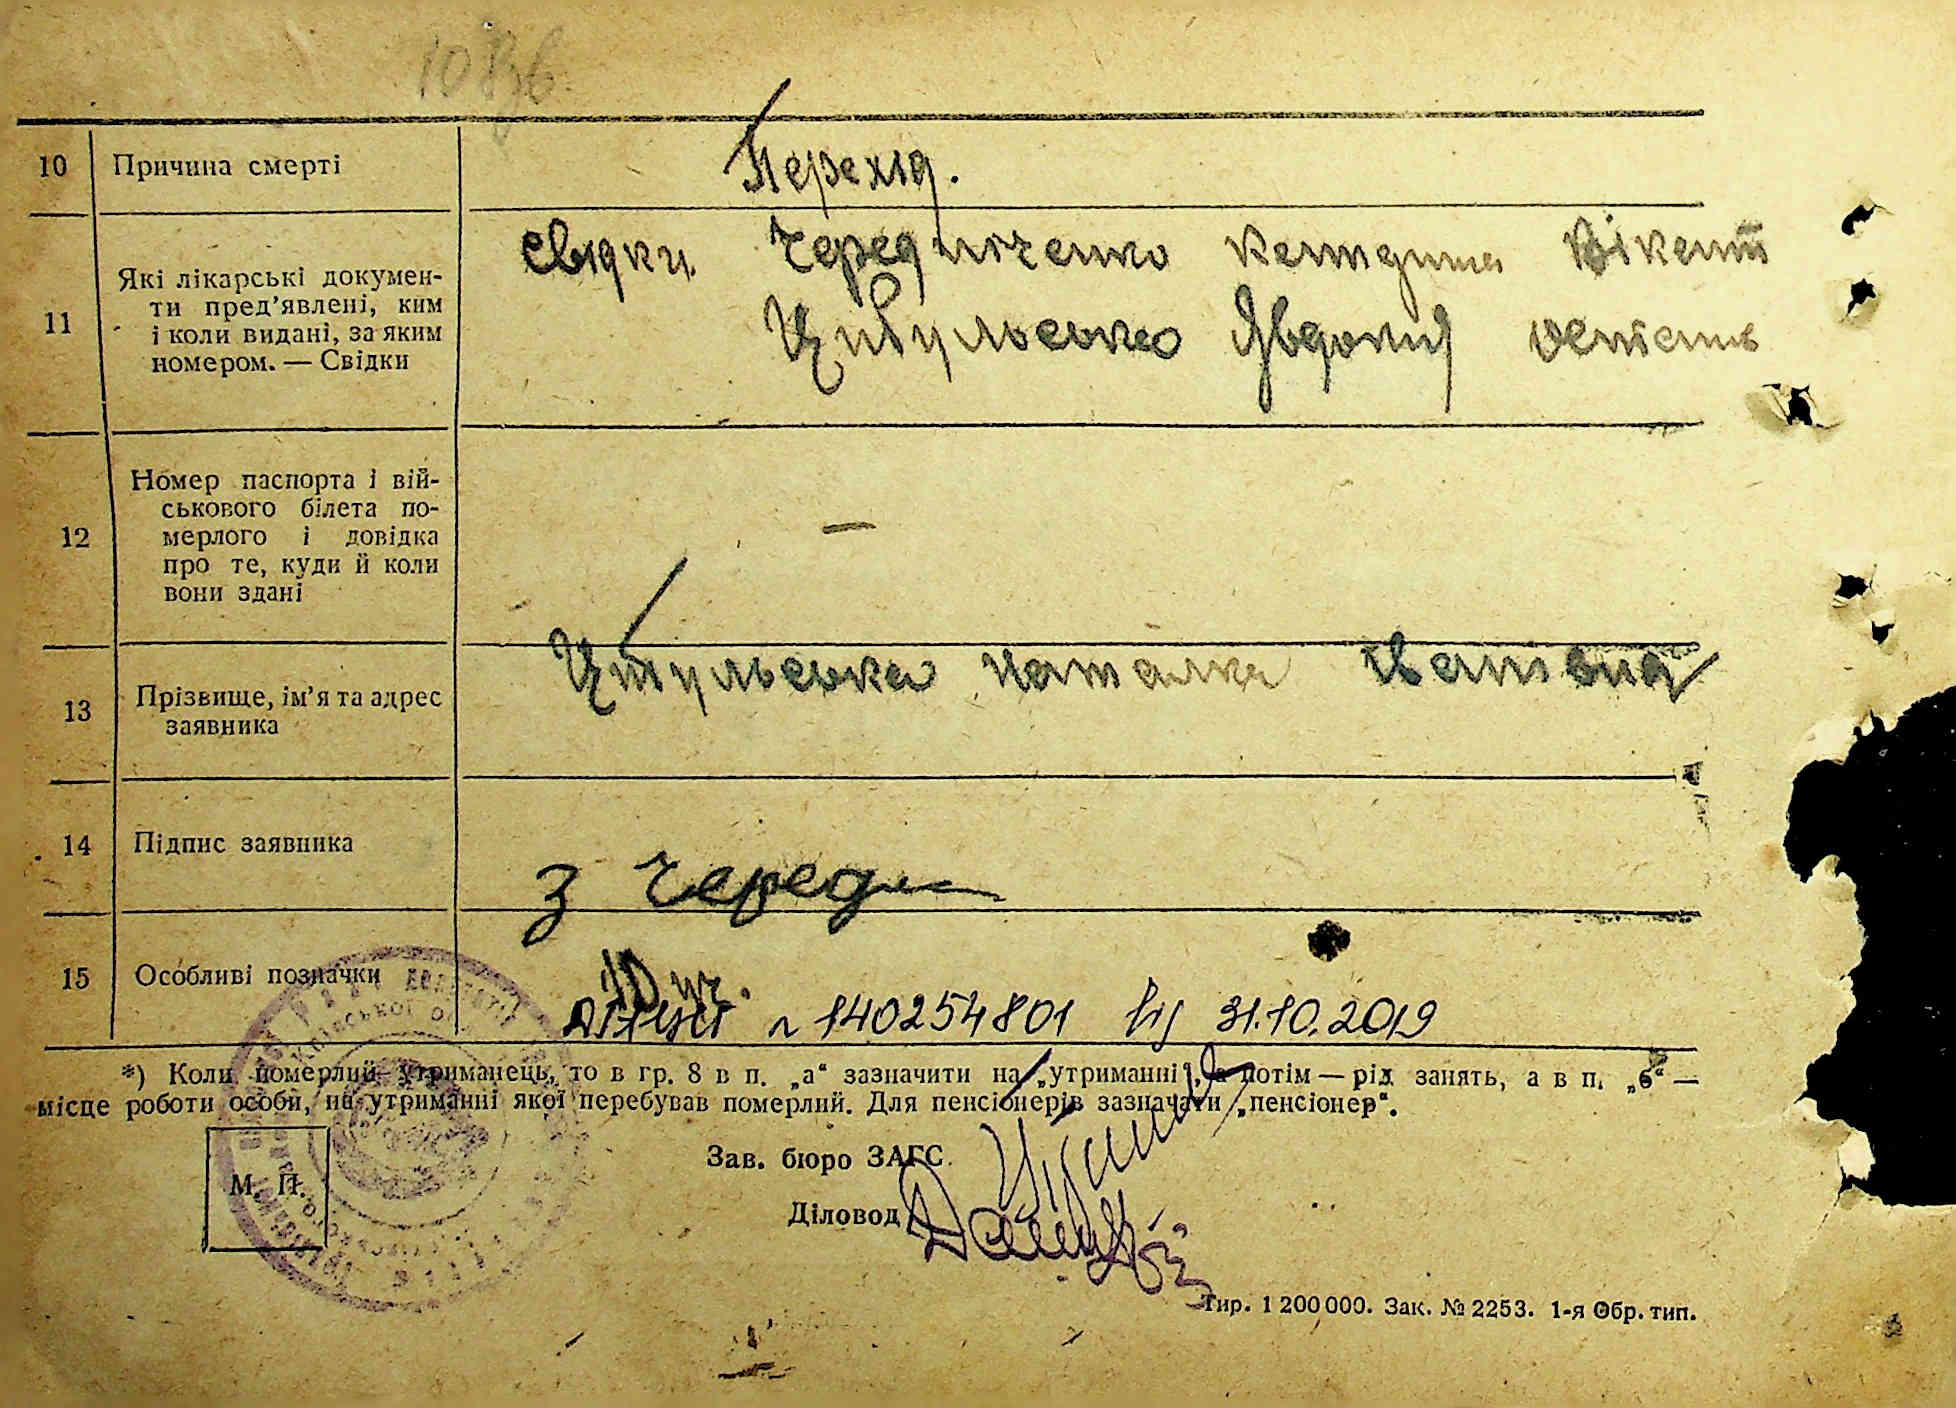 108зв
10 Причина смерті
Перехід.
11 Які лікарські докумен-
ти пред'явлені, ким
і коли видані, за яким
номером. — Свідки
свідки. Чередніченко Вікент
Цибульсько Явдоким
12 Номер паспорта і вій-
ськового білета по-
мерлого і довідка
про те, куди й коли
вони здані
—
13 Прізвище, ім'я та адрес
заявника
Цибульська Наталка Іванівна
14 Підпис заявника
З Череднe
15 Особливі позначки
№ 140254801 від 31.10.2019
*) Коли померлий утриманець, то в гр. 8 в п. „а“ зазначити на „утриманні“, а потім — рід занять, а в п. „б“ —
місце роботи особи, на утриманні якої перебував померлий. Для пенсіонерів зазначати „пенсіонер“.
Зав. бюро ЗАГС
М. П.
Діловод
Тир. 1 200 000. Зак. № 2253. 1-я Обр. тип.